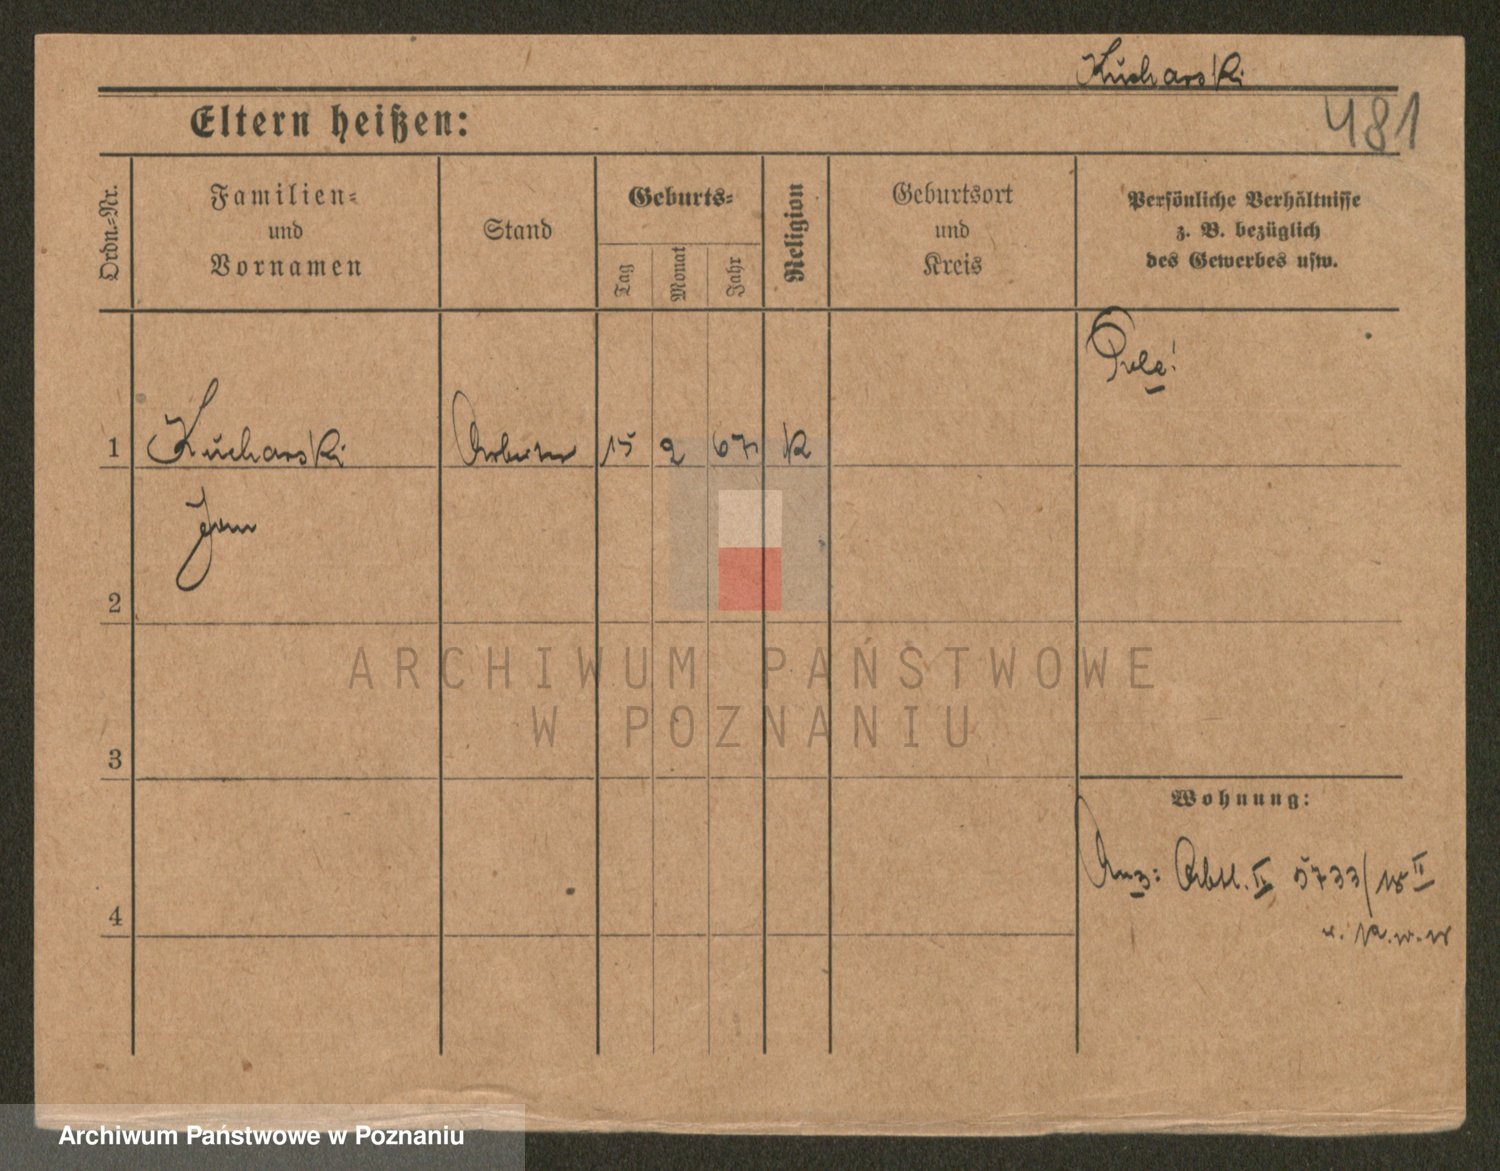 Kucharski
481
Eltern heißen:
Ordn.-Nr.
Familien- und Vornamen
Stand
Geburts-
Tag
Monat
Jahr
Religion
Geburtsort und Kreis
Persönliche Verhältnisse
z. B. bezüglich
des Gewerbes usw.
Pole!
1 Kucharski Arbeiter 15 2 67 K
Jan
2
ARCHIWUM PAŃSTWOWE
W POZNANIU
3
Wohnung:
Anz: Abtl. II 5733/18 II
4
Archiwum Państwowe w Poznaniu